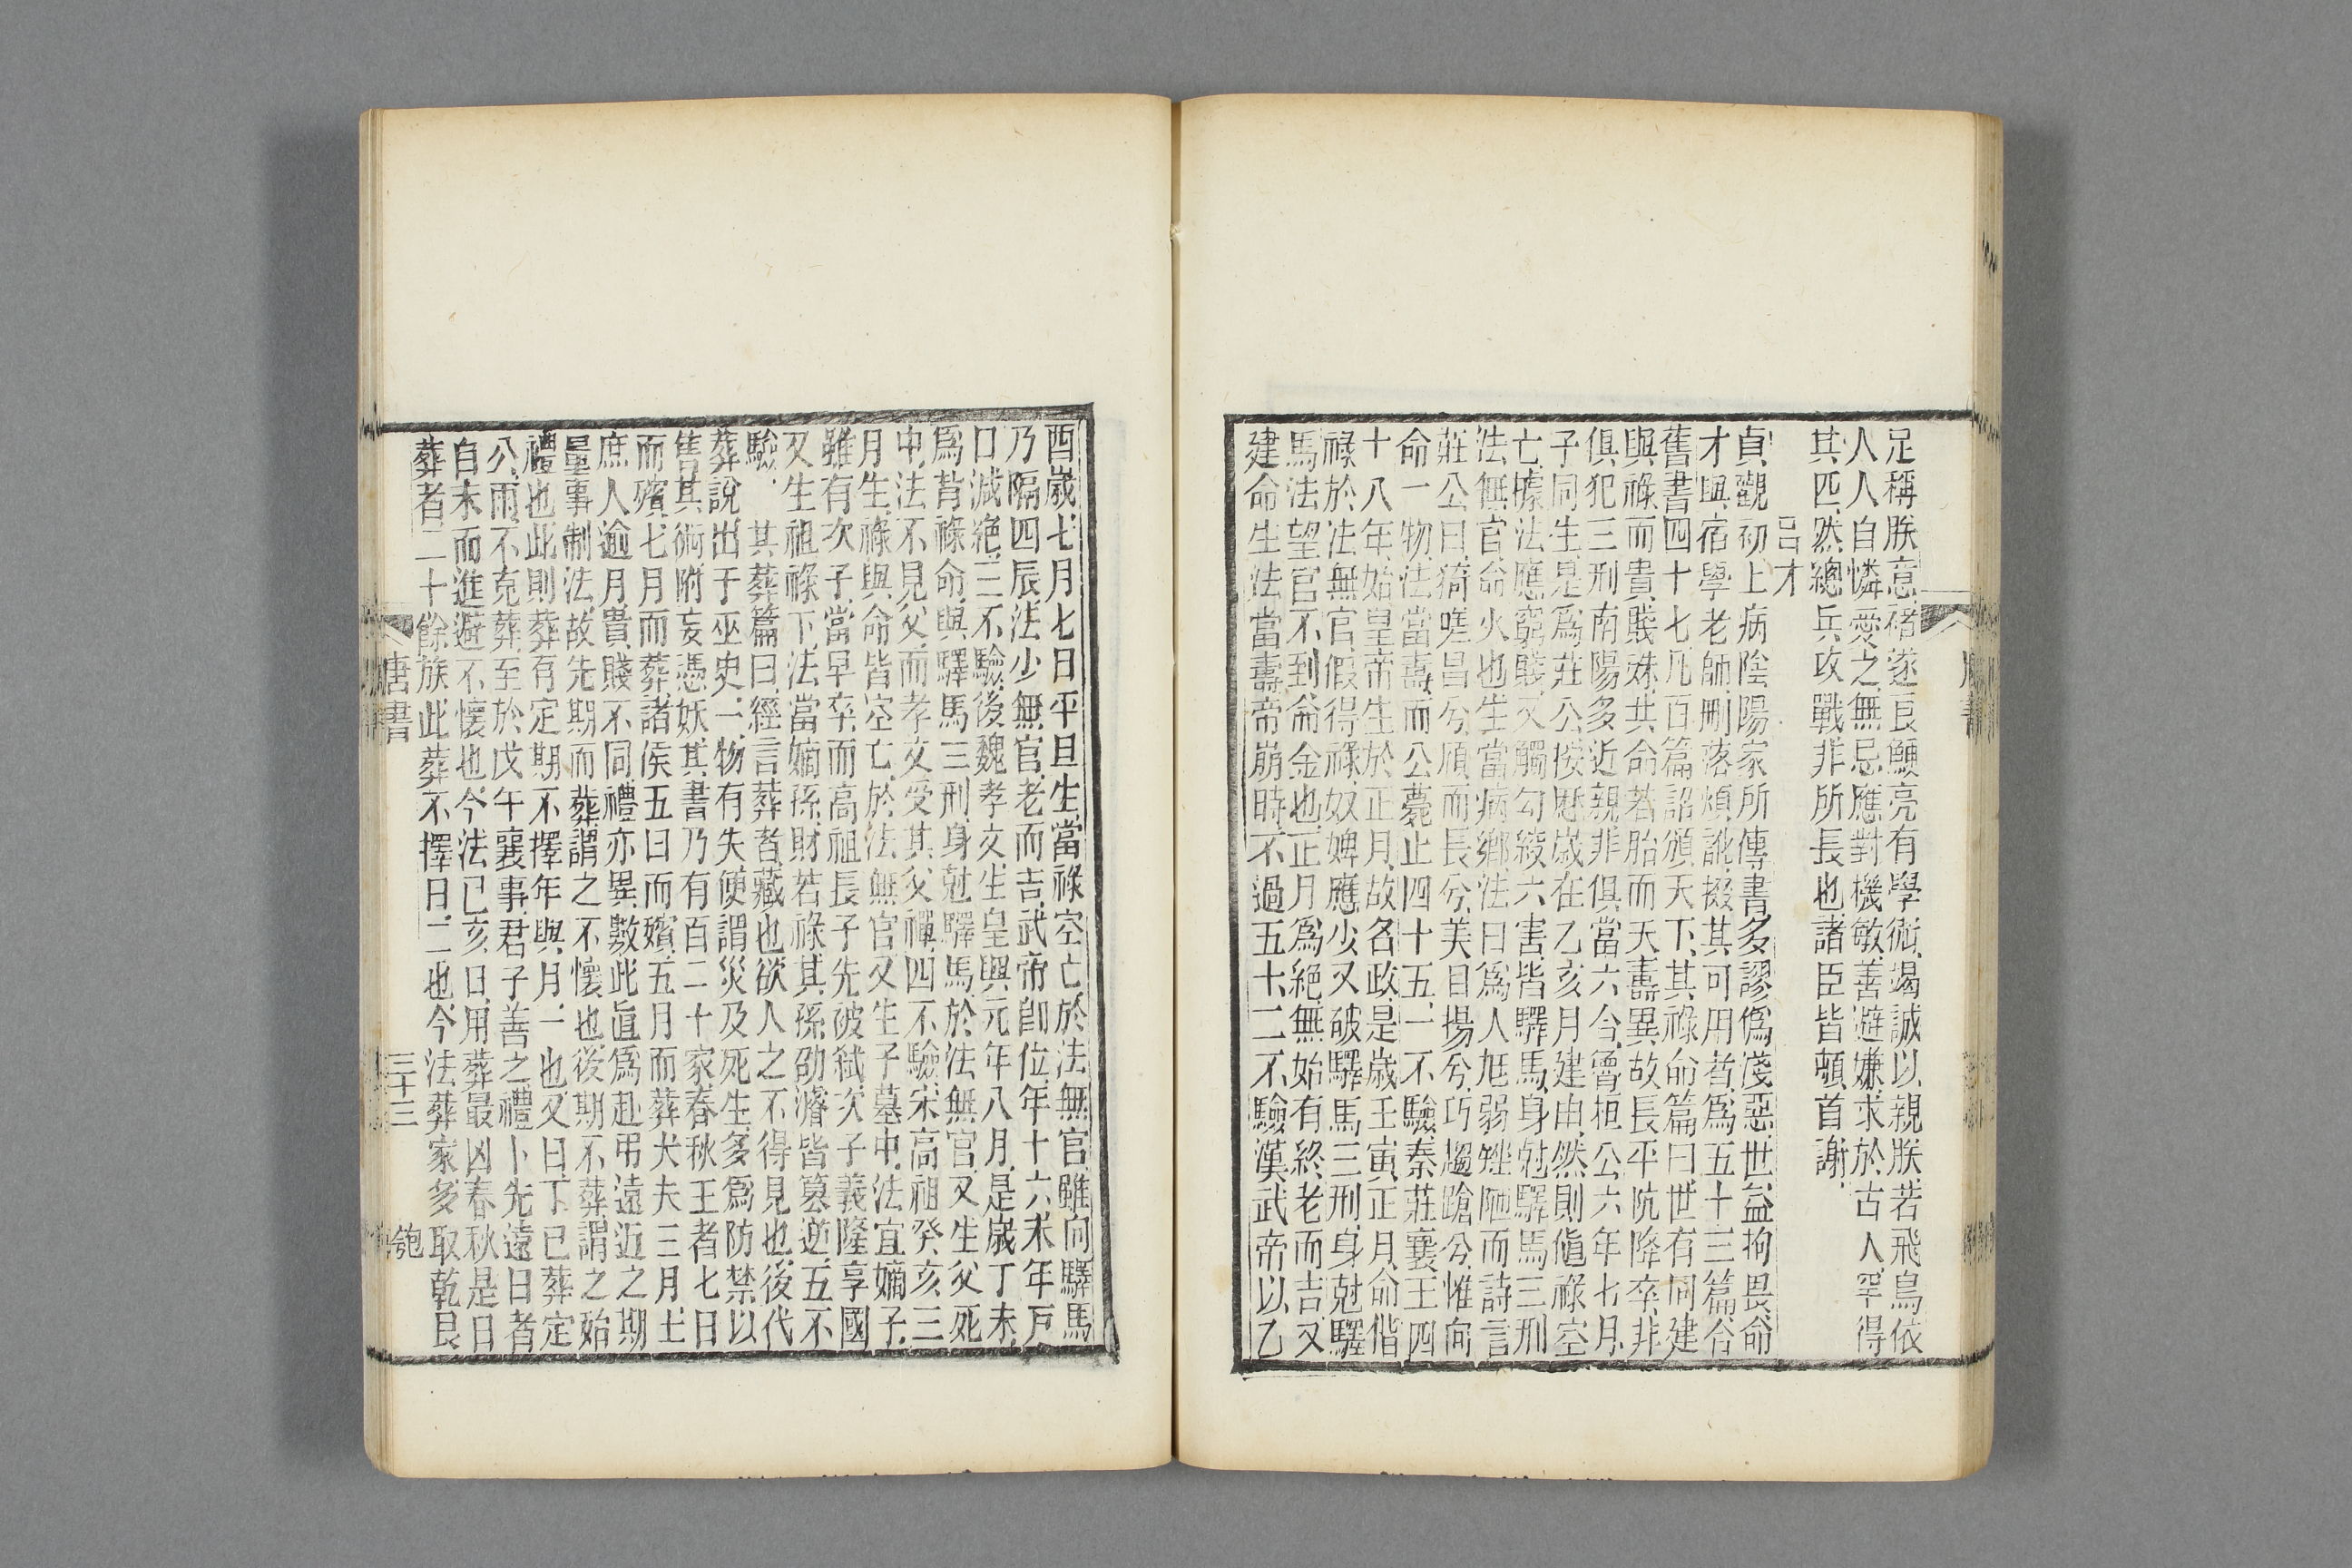 足稱朕意褚遂良鯁亮有學術竭誠以親朕若飛鳥依
人人自憐愛之無忌應對機敏善避嫌求於古人罕得
其匹然總兵攻戰非所長也諸臣皆頓首謝
呂才
貞觀初上病陰陽家所傳書多謬僞淺惡世益拘畏命
才與宿學老師刪落煩訛掇其可用者爲五十三篇合
舊書四十七凡百篇詔頒天下其祿命篇曰世有同建
與祿而貴賤殊共命若胎而夭壽異故長平阬降卒非
俱犯三刑南陽多近親非俱當六合魯桓公六年七月
子同生是爲莊公按歷歲在乙亥月建申然則値祿空
亡據法應窮賤又觸勾絞六害皆驛馬身尅驛馬三刑
法無官命火也生當病鄉法曰爲人尫弱矬陋而詩言
莊公曰猗嗟昌兮頎而長兮美目揚兮巧趨蹌兮惟向
命一物法當壽而公薨止四十五一不驗秦莊襄王四
十八年始皇帝生於正月故名政是歲壬寅正月命偕
祿於法無官假得祿奴婢應少又破驛馬三刑身尅驛
馬法望官不到命金也正月爲絕無始有終老而吉又
建命生法當壽帝崩時不過五十二不驗漢武帝以乙
酉歲七月七日平旦生當祿空亡於法無官雖向驛馬
乃隔四辰法少無官老而吉武帝卽位年十六末年戶
口減絕三不驗後魏孝文生皇興元年八月是歲丁未
爲背祿命與驛馬三刑身尅驛馬於法無官又生父死
中法不見父而孝文受其父禪四不驗宋高祖癸亥三
月生祿與命皆空亡於法無官又生子墓中法宜嫡子
雖有次子當早卒而高祖長子先破弑次子義隆享國
又生祖祿下法當嫡孫財若祿其孫劭濬皆篡逆五不
驗 其葬篇曰經言葬者藏也欲人之不得見也後代
葬說出于巫史一物有失便謂災及死生多爲防禁以
售其術附妄憑妖其書乃有百二十家春秋王者七日
而殯七月而葬諸侯五日而殯五月而葬大夫三月士
庶人逾月貴賤不同禮亦異數此直爲赴弔遠近之期
量事制法故先期而葬謂之不懷也後期不葬謂之殆
禮也此則葬有定期不擇年與月一也又曰丁巳葬定
公雨不克葬至於戊午襄事君子善之禮卜先遠日者
自末而進避不懷也今法已亥日用葬最凶春秋是日
葬者二十餘族此葬不擇日二也今法葬家多取乾艮
唐書
三十三
匏